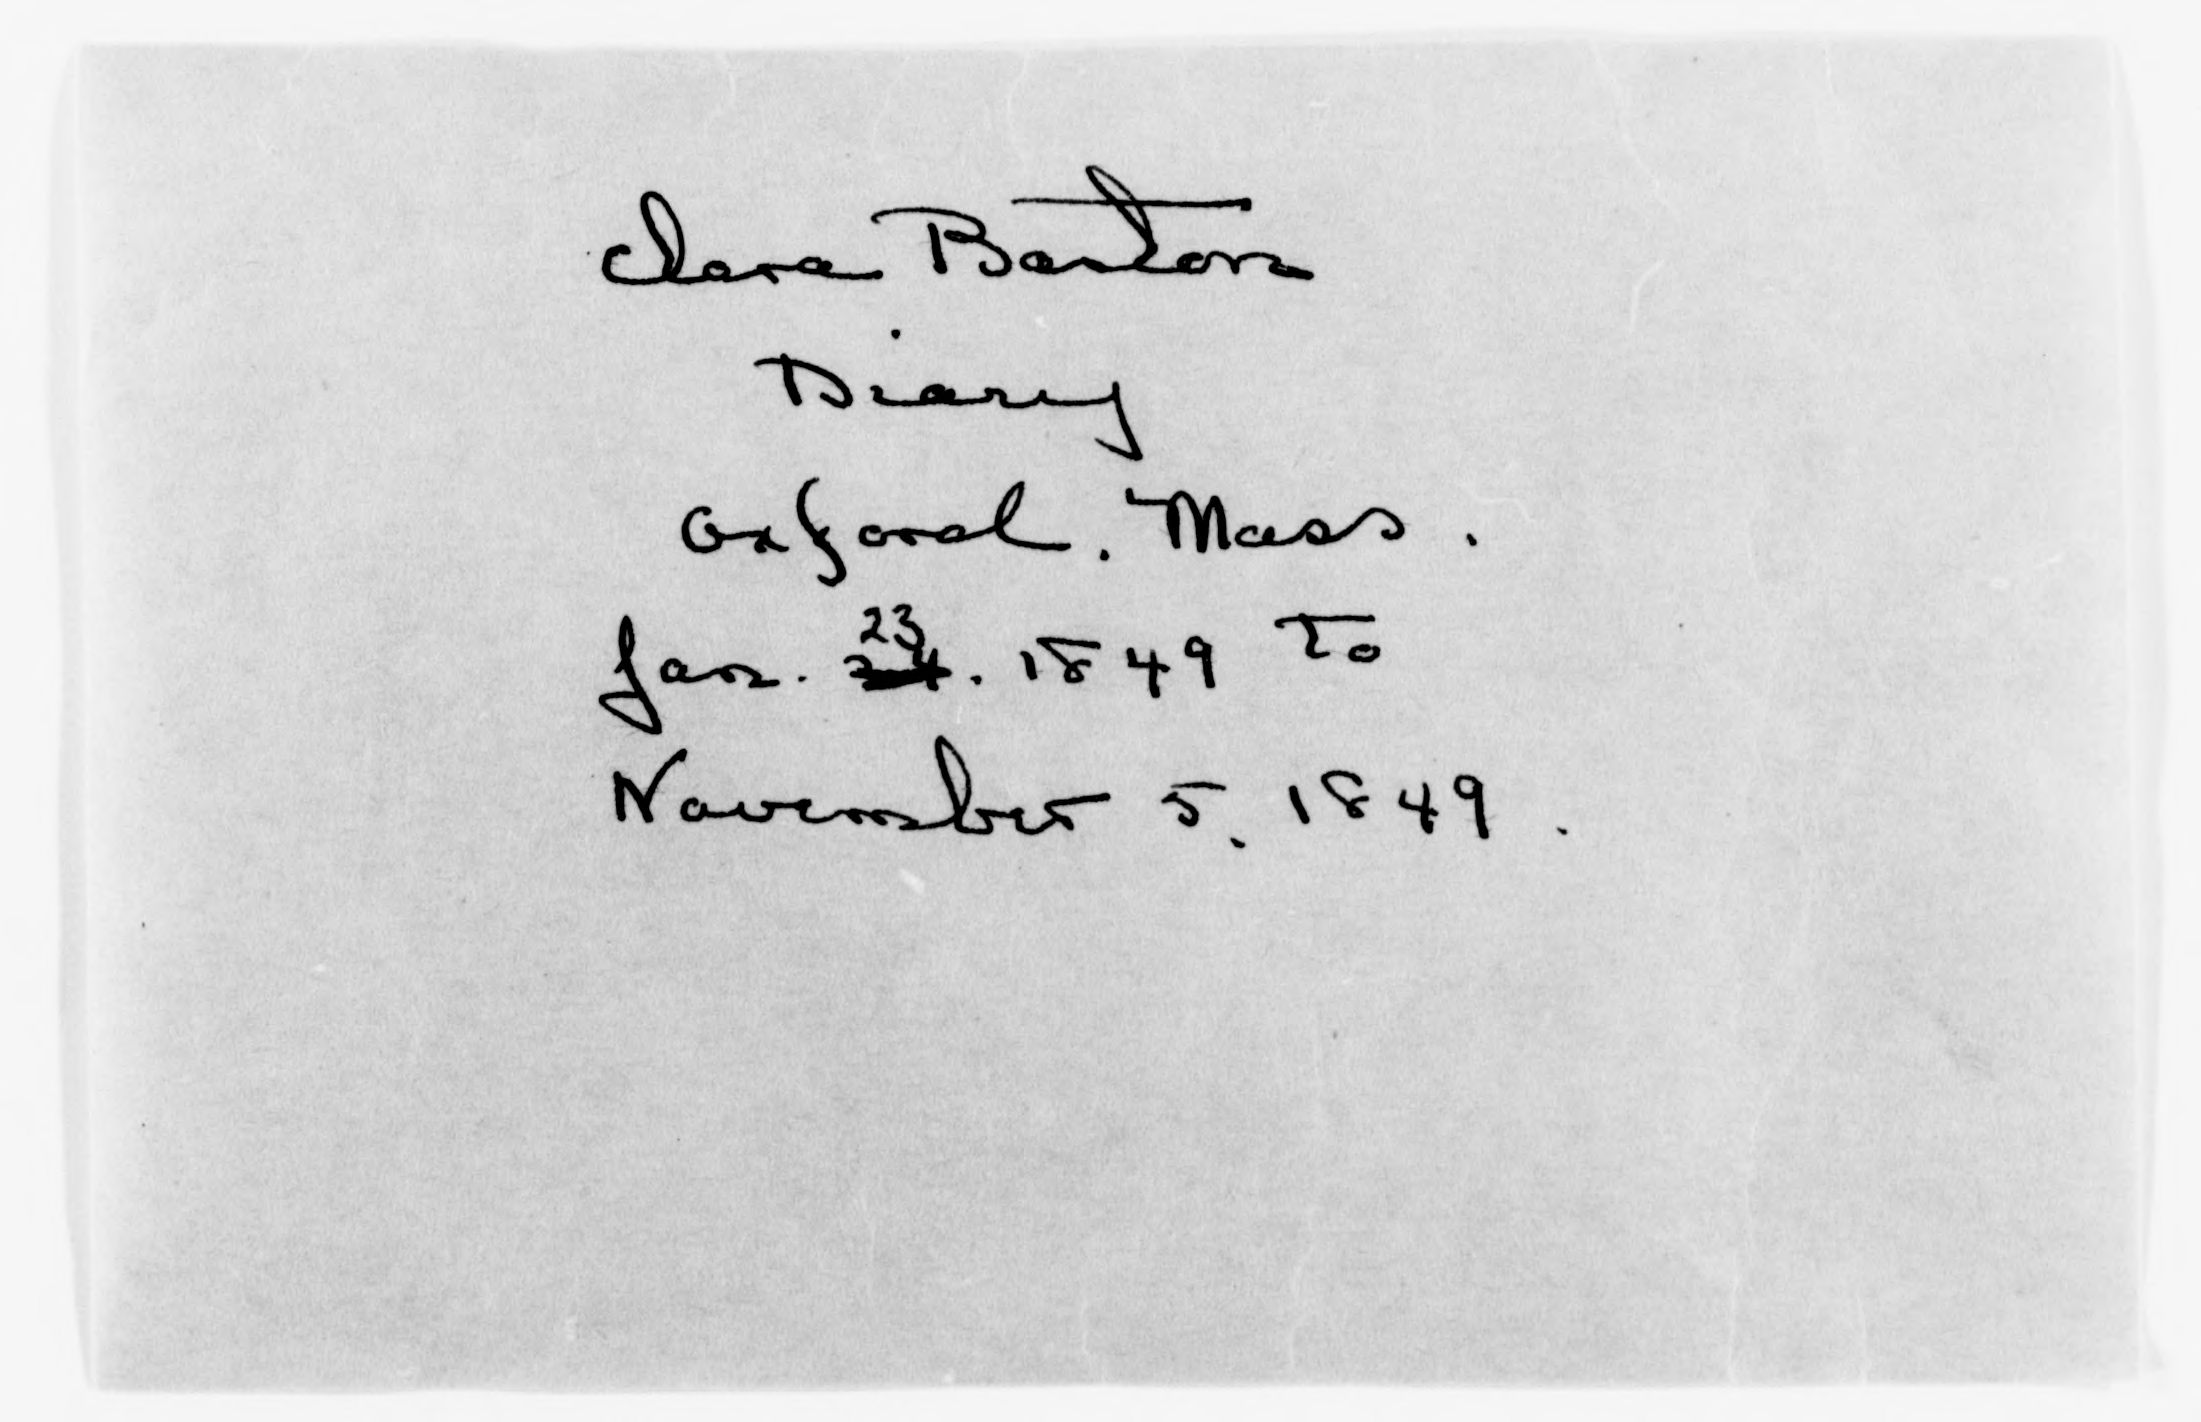 Clara Barton
Diary
Oxford. Mass.
Jan. 23 24. 1849 To
November 5, 1849.